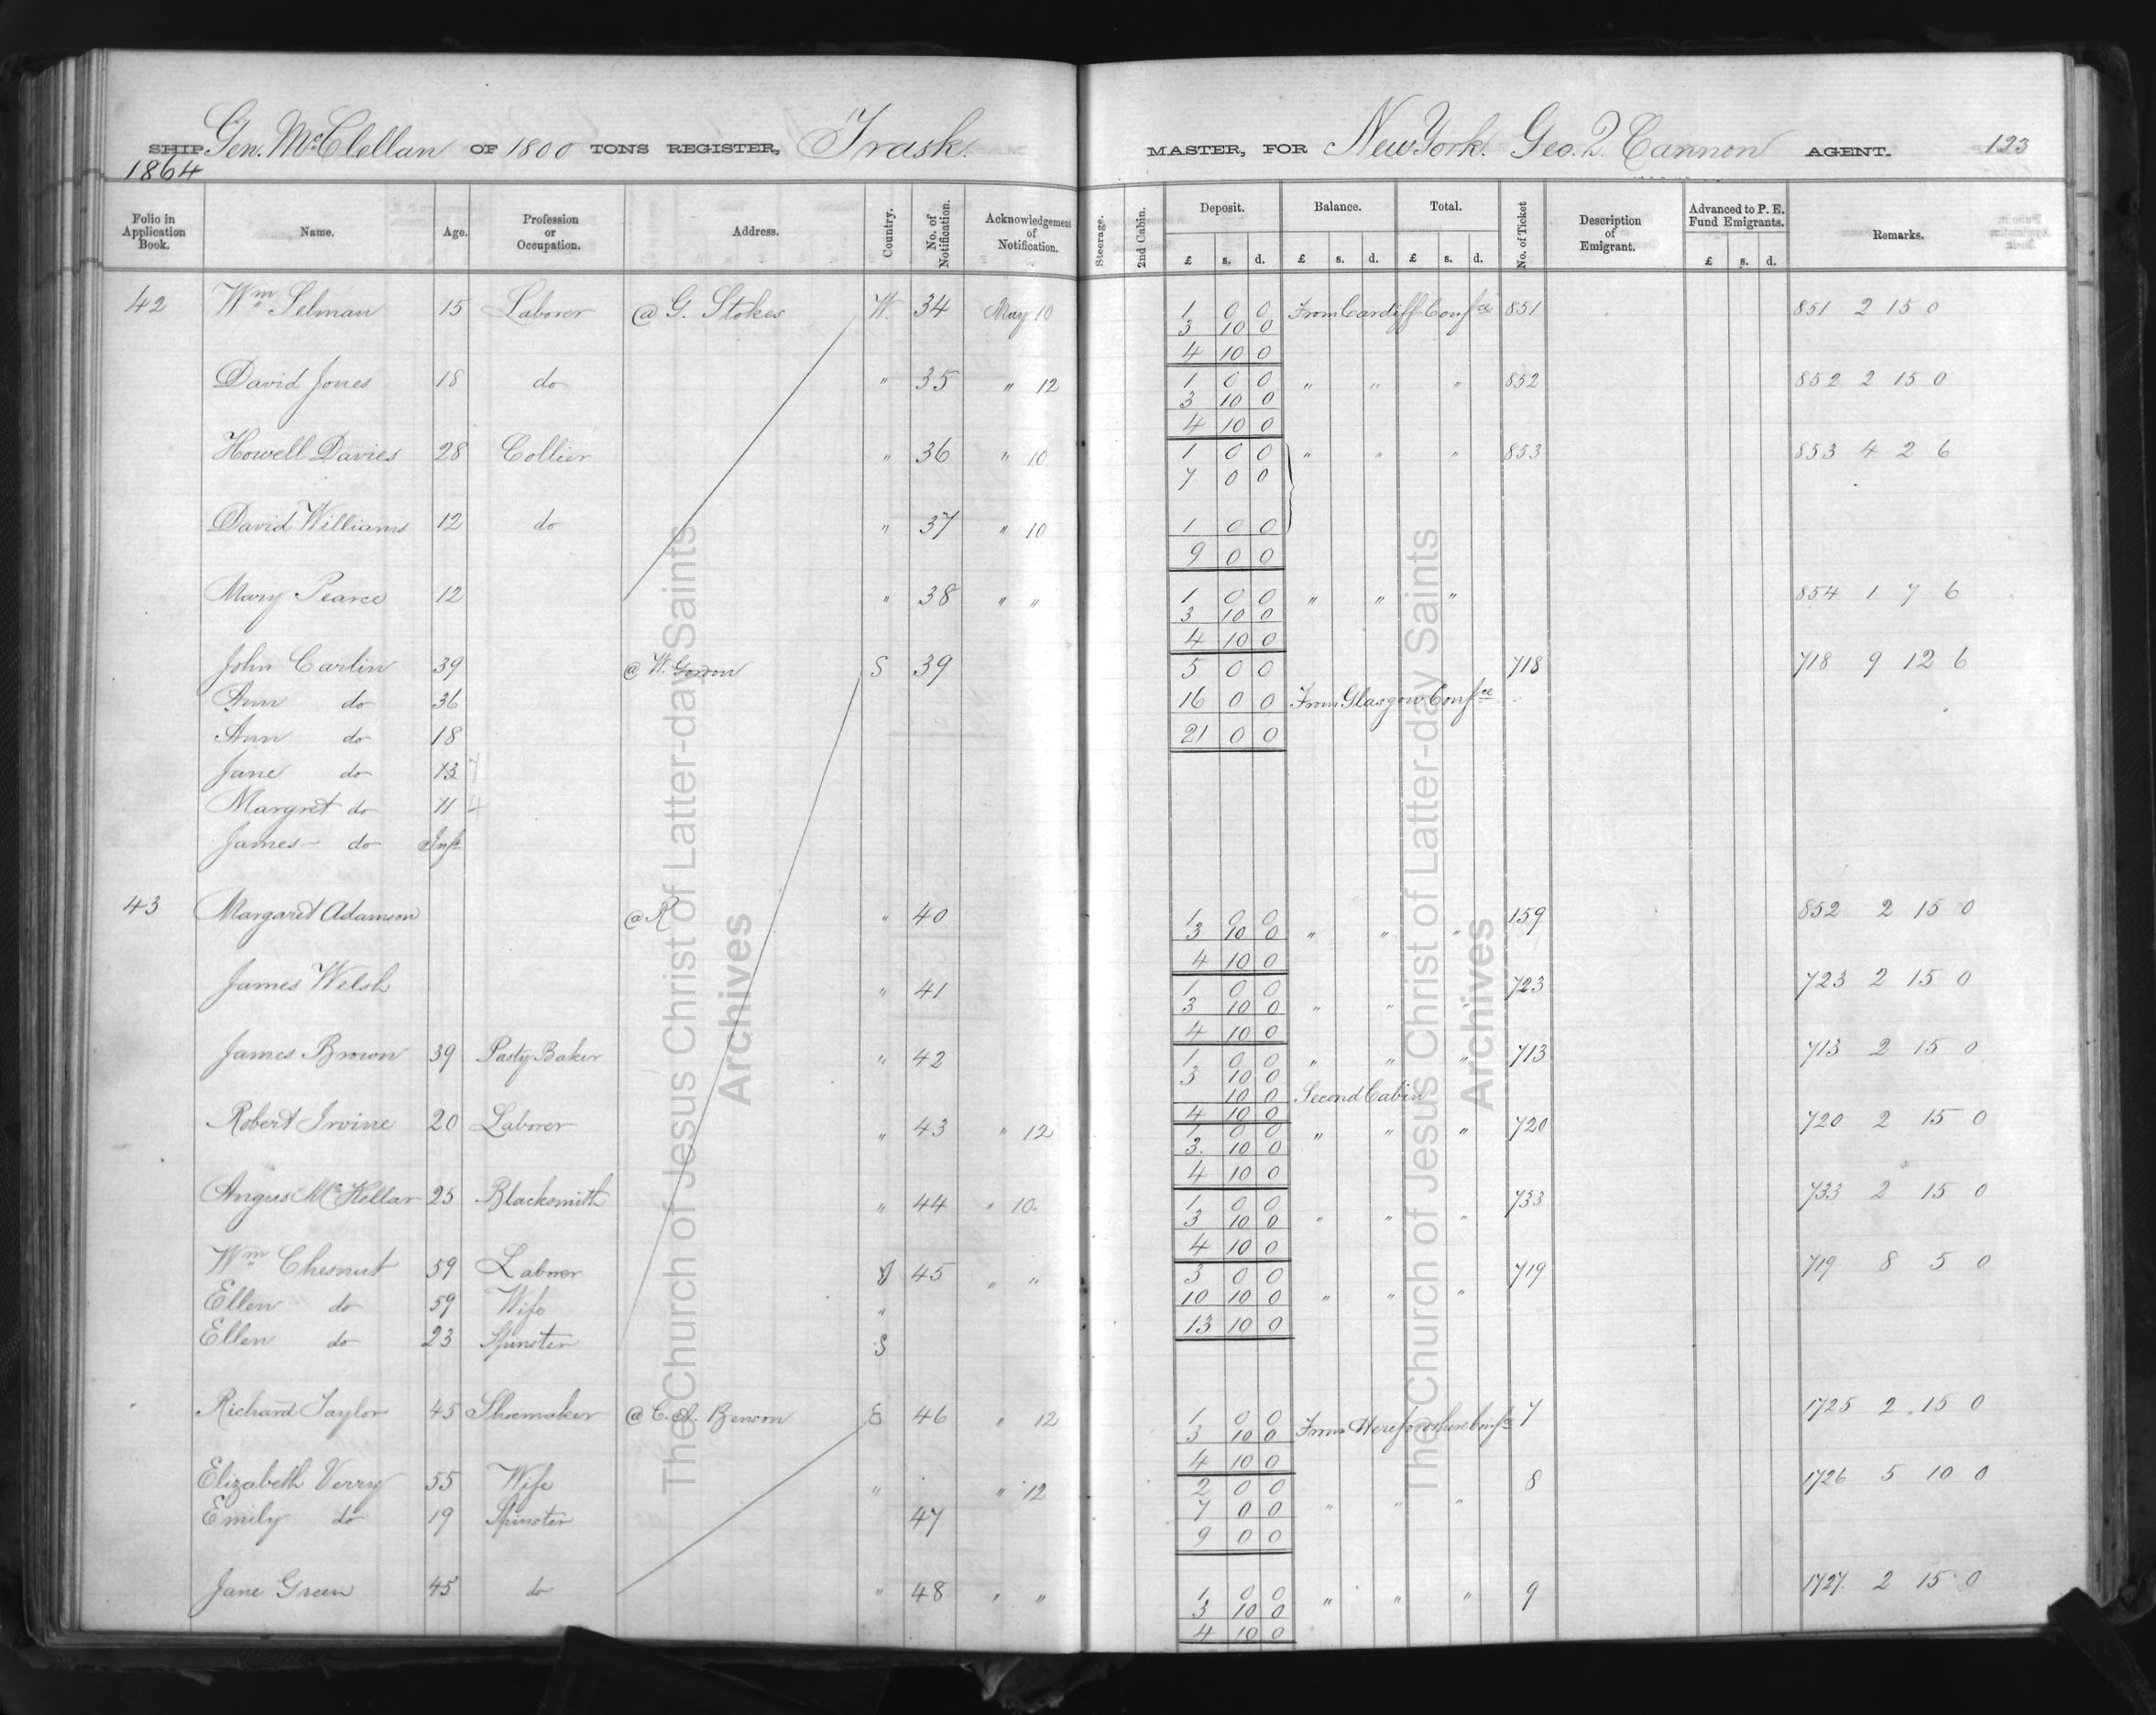 SHIP Gen. McClellan OF 1800 TONS REGISTER, Trask. MASTER, FOR New York. Geo. Q. Cannon AGENT. 123
1864
Folio in Application Book. Name. Age. Profession or Occupation. Address. Country. No. of Notification. Acknowledgement of Notification. Steerage. 2nd Cabin. Deposit. Balance. Total. No. of Ticket Description of Emigrant. Advanced to P. E. Fund Emigrants. Remarks.
£ s. d. £ s. d. £ s. d. £ s. d.
42 Wm Selman 15 Laborer @ G. Stokes W. 34 May 10 1 0 0 From Cardiff Confce 851 851 2 15 0
3 10 0
4 10 0
David Jones 18 do " 35 " 12 1 0 0 " " " 852 852 2 15 0
3 10 0
4 10 0
Howell Davies 28 Collier " 36 " 10 1 0 0 " " " 853 853 4 2 6
7 0 0
David Williams 12 do " 37 " 10 1 0 0
9 0 0
Mary Pearce 12 " 38 " " 1 0 0 " " " 854 1 7 6
3 10 0
4 10 0
John Carlin 39 @ W. Gordon S 39 5 0 0 718 718 9 12 6
Ann do 36 16 0 0 From Glasgow Confce
Ann do 18 21 0 0
Jane do 13
Margret do 11
James do Inft
43 Margaret Adamson @ R " 40 1 0 0 159 852 2 15 0
3 10 0 " " "
4 10 0
James Welsh " 41 1 0 0 723 723 2 15 0
3 10 0 " " "
4 10 0
James Brown 39 Pasty Baker " 42 1 0 0 " " " 713 713 2 15 0
3 10 0
10 0 Second Cabin
4 10 0
Robert Irvine 20 Laborer " 43 " 12 1 0 0 " " " 720 720 2 15 0
3. 10 0
4 10 0
Angus McKellar 25 Blacksmith " 44 " 10. 1 0 0 733 733 2 15 0
3 10 0 " " "
4 10 0
Wm Chesnut 59 Laborer 45 " " 3 0 0 719 719 8 5 0
Ellen do 59 Wife " 10 10 0 " " "
13 10 0
Ellen do 23 Spinster S
" Richard Taylor 45 Shoemaker @ C. A. Benson E 46 " 12 1 0 0 From Herefordshire Confce 7 1725 2 15 0
3 10 0
4 10 0
Elizabeth Verry 55 Wife " " 12 2 0 0 8 1726 5 10 0
Emily do 19 Spinster 47 7 0 0 " " "
9 0 0
Jane Green 45 do " 48 " " 1 0 0 " " " 9 1727. 2 15 0
3 10 0
4 10 0
The Church of Jesus Christ of Latter-day Saints
Archives
The Church of Jesus Christ of Latter-day Saints
Archives